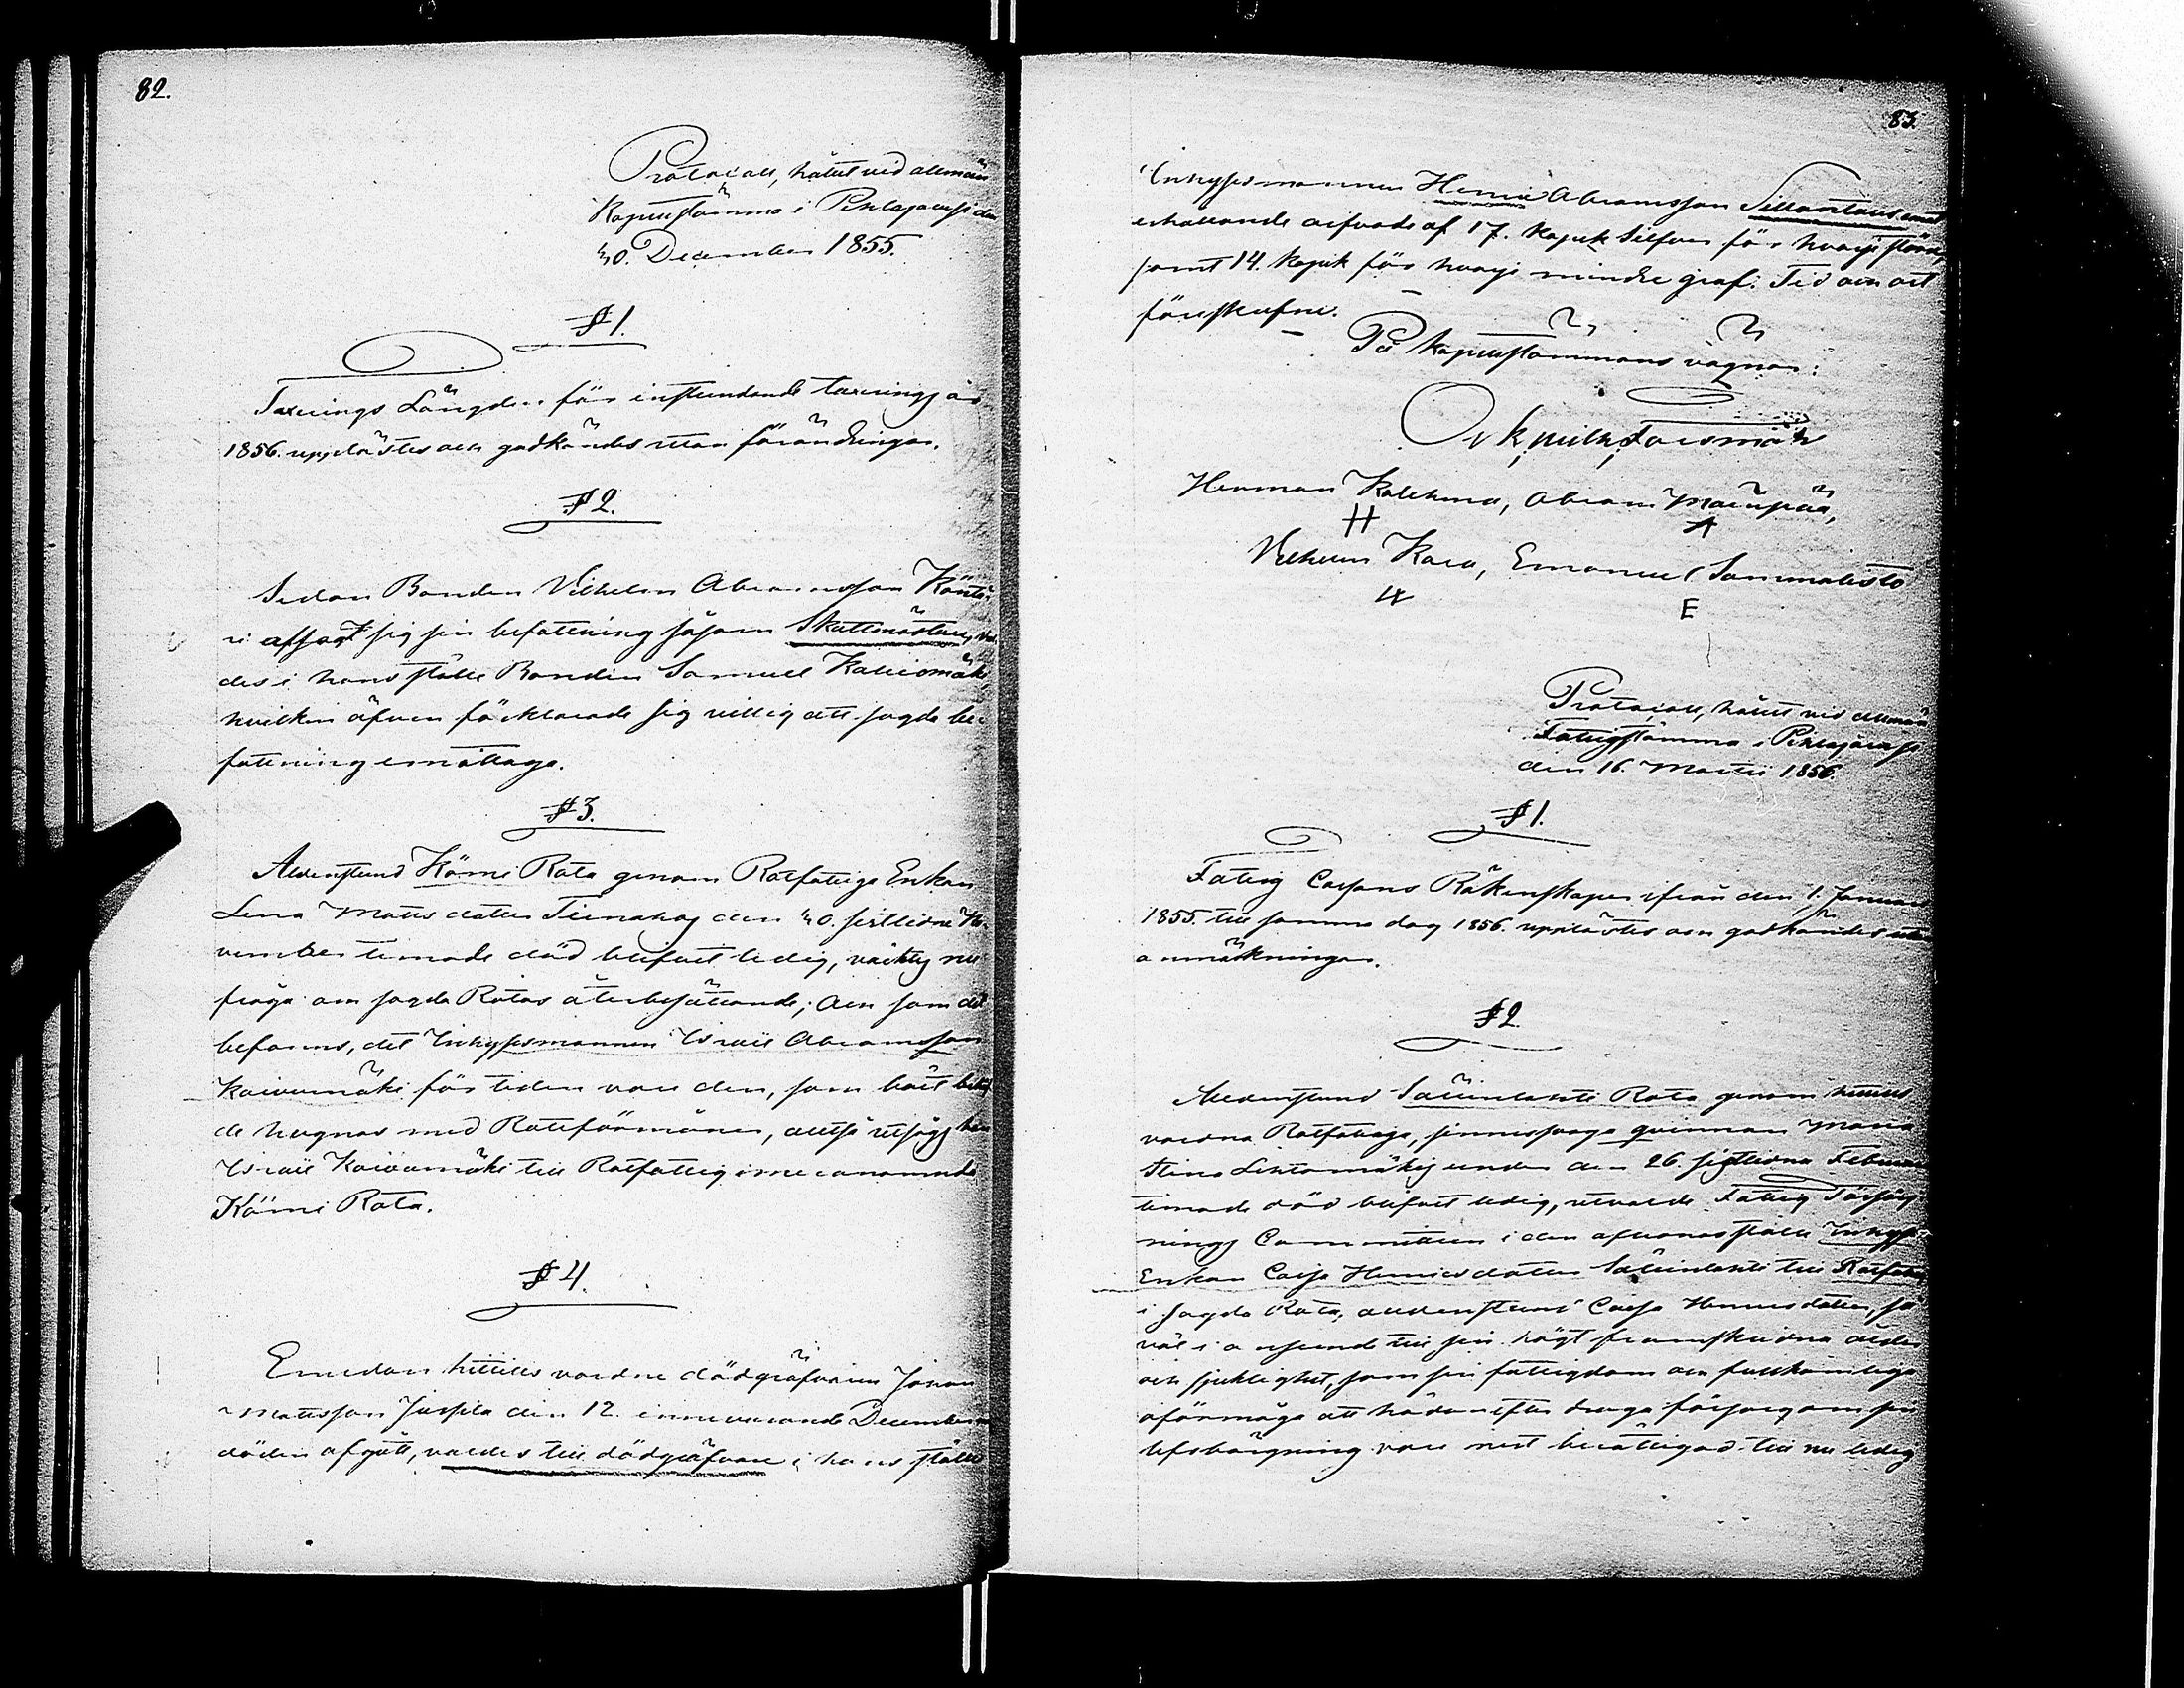 82.
Protocoll, hållet vid allmän
Kapellstämma i Pihlajavesi den
30. December 1855.
§ 1.
Taxerings Längden för instundande taxerings år
1856. upplästes och godkändes utan förändringar.
§ 2.
Sedan Bonden Vilhelm Abramsson Köntä-
ri afsagt sig sin befattning såsom Skattmästare, val-
des i hans ställe Bonden Samuel Kalliomäki,
hvilken äfven förklarade sig villig att sagde be-
fattning emottaga.
§ 3.
Alldenstund Kömi Rota genom Rotfattiga Enkan
Lena Mattsdotter den 30. sistledne No-
vember timade död blifvit ledig, väcktes nu
fråga om sagda Rotas återbesättande; och som det
befanns, det Inhysesmannen Israel Abramsson
Koivumäki för tiden vore den, som bäst behöf-
de hugnas med Roteförmånen, alltså utsågs han
Israel Koivumäki till Rotfattig i merbenämnde
Kömi Rota.
§ 4.
Emedan hittills vordne dödgräfvaren Johan
Mattsson Jussila den 12. innevarande December
döden afgått, valdes till dödgräfvare i hans ställe
83.
Inhysesmannen Henric Abramsson Sillantaus emot
erhållande arfvode af 17. Kopek Silfver för hvarje större,
samt 14. Kopek för hvarje mindre graf. Tid och ort
föreskrefne.
På Kapellstämmans vägnar:
Herman Kolehma, Abram Mäenpää,
H A
Vilhelm Kara, Emanuel Sammalisto
W E
Protocoll, hållet vid allmän
Fattigstämma i Pihlajavesi
den 16. Martii 1856.
§ 1.
Fattig Cassans Räkenskaper ifrån den 1. Januari
1855. till samma dag 1856. upplästes och godkändes utan
anmärkningar.
§ 2
Alldenstund Säläinlahti Rota genom hittills
vordna Rotfattiga, sinnessvaga qvinnan Maria
Stina under den 26. sistledne Februari
timade död blifvit ledig, utvalde Fattig Försörj-
nings Committeen i den aflidnas ställe Inhyses-
Enkan Caisa Henricsdotter Säläinlahti till Rotfattig
i sagda Rota, alldenstund Caisa Henricsdotter, så
väl i anseende till sin högt framskridna ålder
och sjuklighet, som sin fattigdom och fullkomliga
oförmåga att hädanefter draga försorg om sin
lifsbärgning vore mest berättigad till nu ledig